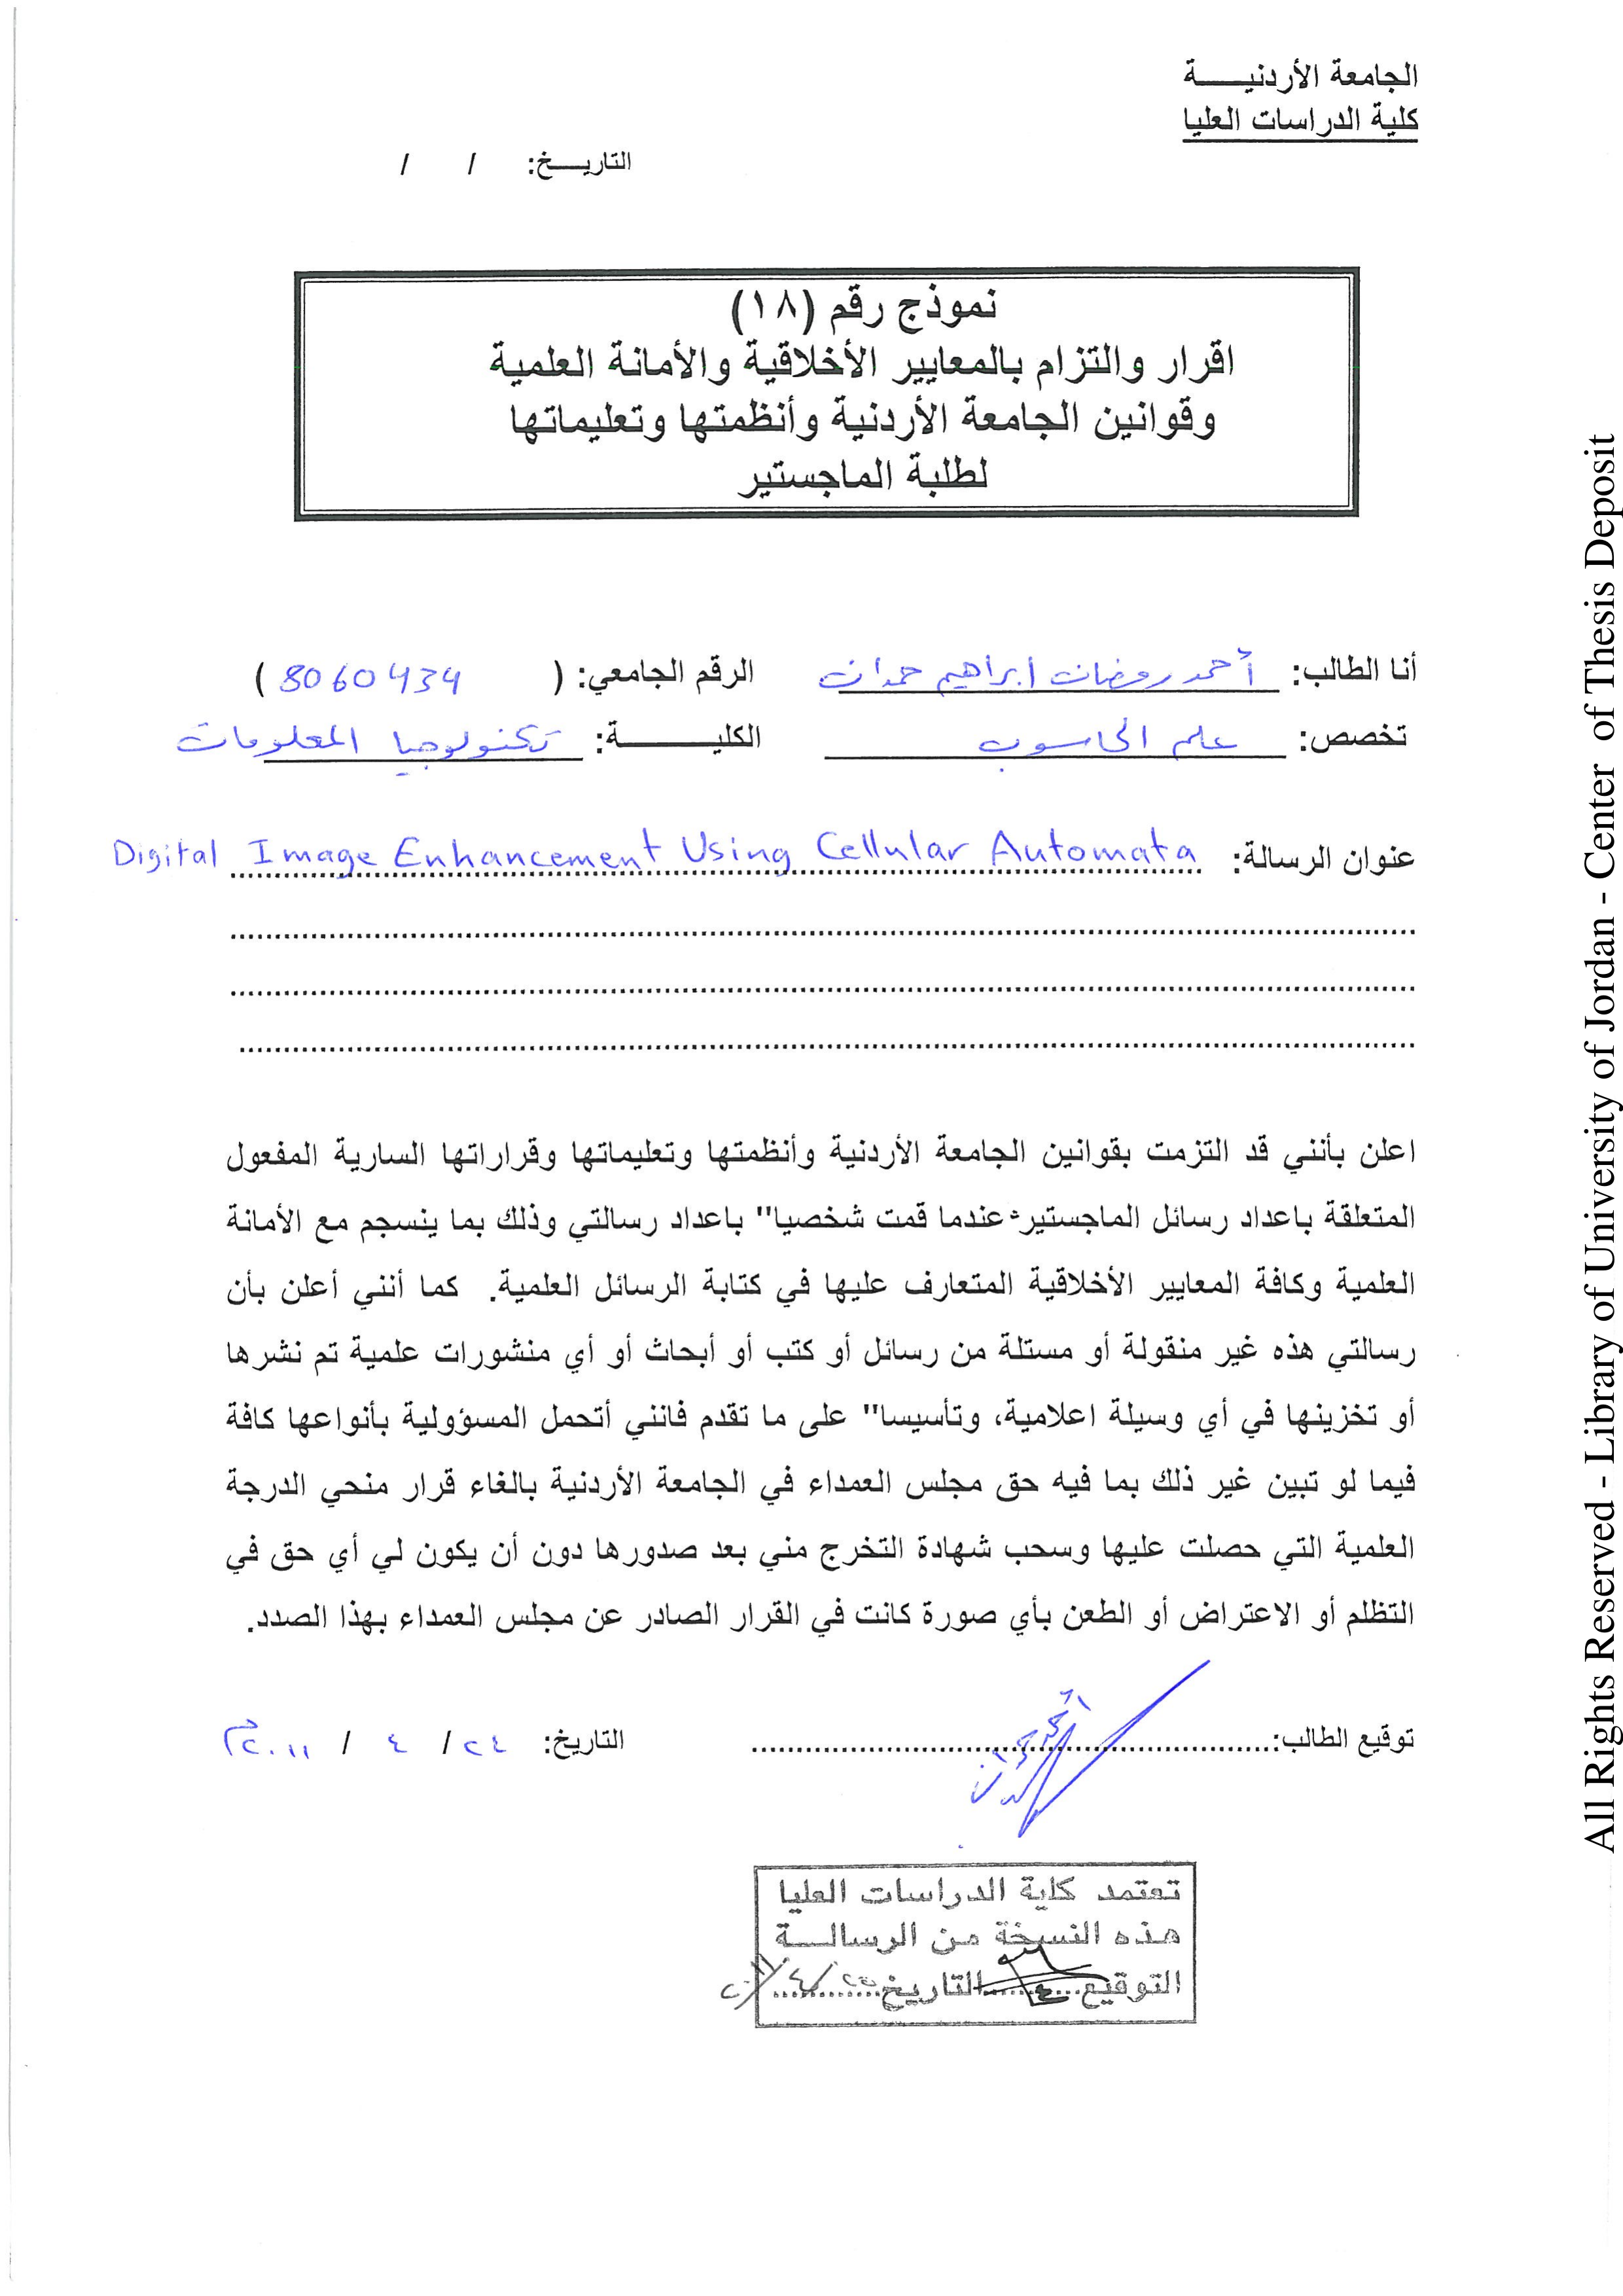 الجامعة الأردنيـــــة
كلية الدراسات العليا
التاريـــخ: / /
نموذج رقم (١٨)
اقرار والتزام بالمعايير الأخلاقية والأمانة العلمية
وقوانين الجامعة الأردنية وأنظمتها وتعليماتها
لطلبة الماجستير
أنا الطالب: أحمد رمضان ابراهيم حمدان الرقم الجامعي: ( 8060434 )
تخصص: علم الحاسوب الكليـــــــة: تكنولوجيا المعلومات
عنوان الرسالة: Digital Image Enhancement Using Cellular Automata
اعلن بأنني قد التزمت بقوانين الجامعة الأردنية وأنظمتها وتعليماتها وقراراتها السارية المفعول
المتعلقة باعداد رسائل الماجستير عندما قمت شخصيا" باعداد رسالتي وذلك بما ينسجم مع الأمانة
العلمية وكافة المعايير الأخلاقية المتعارف عليها في كتابة الرسائل العلمية. كما أنني أعلن بأن
رسالتي هذه غير منقولة أو مستلة من رسائل أو كتب أو أبحاث أو أي منشورات علمية تم نشرها
أو تخزينها في أي وسيلة اعلامية، وتأسيسا" على ما تقدم فانني أتحمل المسؤولية بأنواعها كافة
فيما لو تبين غير ذلك بما فيه حق مجلس العمداء في الجامعة الأردنية بالغاء قرار منحي الدرجة
العلمية التي حصلت عليها وسحب شهادة التخرج مني بعد صدورها دون أن يكون لي أي حق في
التظلم أو الاعتراض أو الطعن بأي صورة كانت في القرار الصادر عن مجلس العمداء بهذا الصدد.
توقيع الطالب: التاريخ: ٢٤ / ٤ / ٢٠١١م
تعتمد كلية الدراسات العليا
هذه النسخة من الرسالـــة
التوقيع التاريخ
All Rights Reserved - Library of University of Jordan - Center of Thesis Deposit